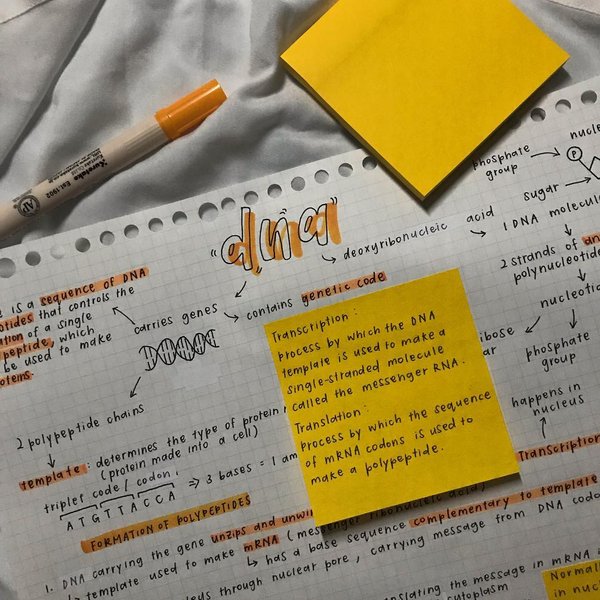 Kuretake Est.1902
"dna"
deoxyribonucleic acid
1 DNA molecu
phosphate
group
P
nucle
sugar
2 strands of an
polynucleotide
nucleotid
phosphate
group
ibose
ar
happens in
nucleus
Transcription
e is a sequence of DNA
otides that controls the
ation of a single
peptide, which
be used to make
oteins.
carries genes
contains genetic code
2 polypeptide chains
template: determines the type of protein
(protein made into a cell)
triplet code / codon
A T G T T A C C A
⇒ 3 bases = 1 am
Transcription:
process by which the DNA
template is used to make a
single-stranded molecule
called the messenger RNA.
Translation:
process by which the sequence
of mRNA codons is used to
make a polypeptide.
FORMATION OF POLYPEPTIDES
1. DNA carrying the gene unzips and unwin
template used to make mRNA (messenger ribonucleic acid)
has a base sequence complementary to template
cleus through nuclear pore, carrying message from DNA codo
nslating the message in mRNA i
cytoplasm
Normall
in nuc